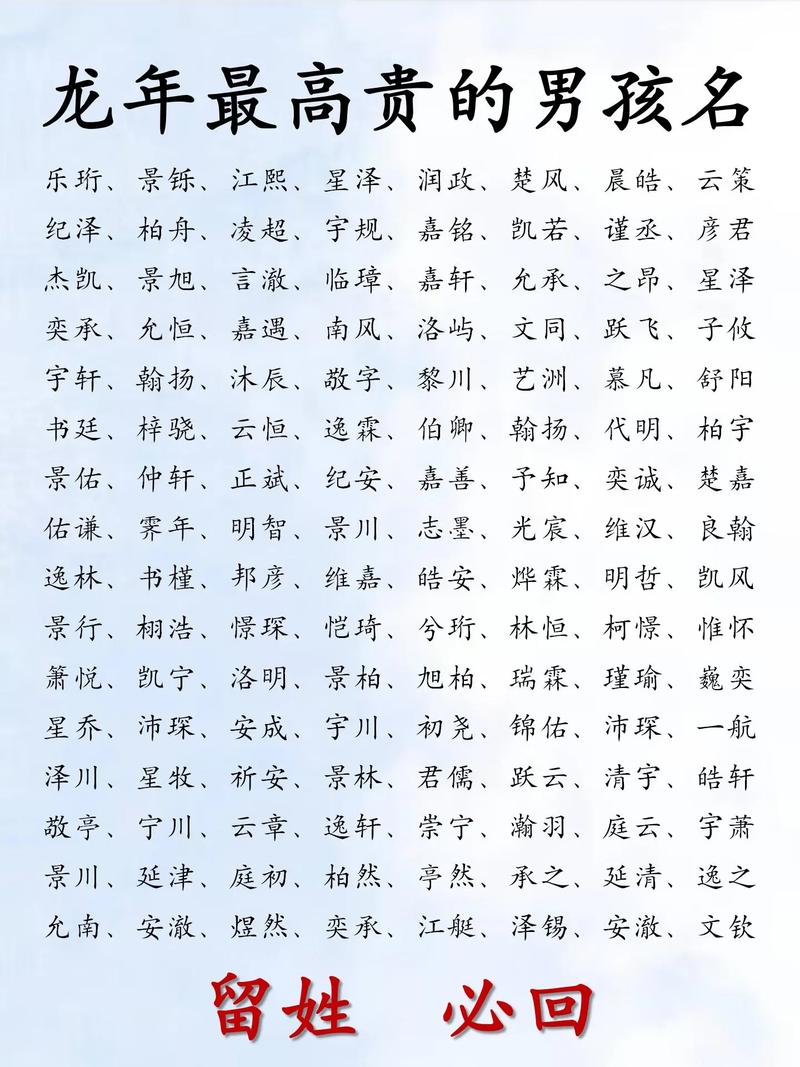 龙年最高贵的男孩名
乐珩、景铄、江熙、星泽、润政、楚风、晨皓、云策
纪泽、柏舟、凌超、宇规、嘉铭、凯若、谨丞、彦君
杰凯、景旭、言澈、临璋、嘉轩、允承、之昂、星泽
奕承、允恒、嘉遇、南风、洛屿、文同、跃飞、子攸
宇轩、翰扬、沐辰、敬字、黎川、艺洲、慕凡、舒阳
书廷、梓骁、云恒、逸霖、伯卿、翰扬、代明、柏宇
景佑、仲轩、正斌、纪安、嘉善、予知、奕诚、楚嘉
佑谦、霁年、明智、景川、志墨、光宸、维汉、良翰
逸林、书槿、邦彦、维嘉、皓安、烨霖、明哲、凯风
景行、栩浩、憬琛、恺琦、兮珩、林恒、柯憬、惟怀
箫悦、凯宁、洛明、景柏、旭柏、瑞霖、瑾瑜、巍奕
星乔、沛琛、安成、宇川、初尧、锦佑、沛琛、一航
泽川、星牧、祈安、景林、君儒、跃云、清宇、皓轩
敬亭、宁川、云章、逸轩、崇宁、瀚羽、庭云、宇萧
景川、延津、庭初、柏然、亭然、承之、延清、逸之
允南、安澈、煜然、奕承、江艇、泽锡、安澈、文钦
留姓 必回